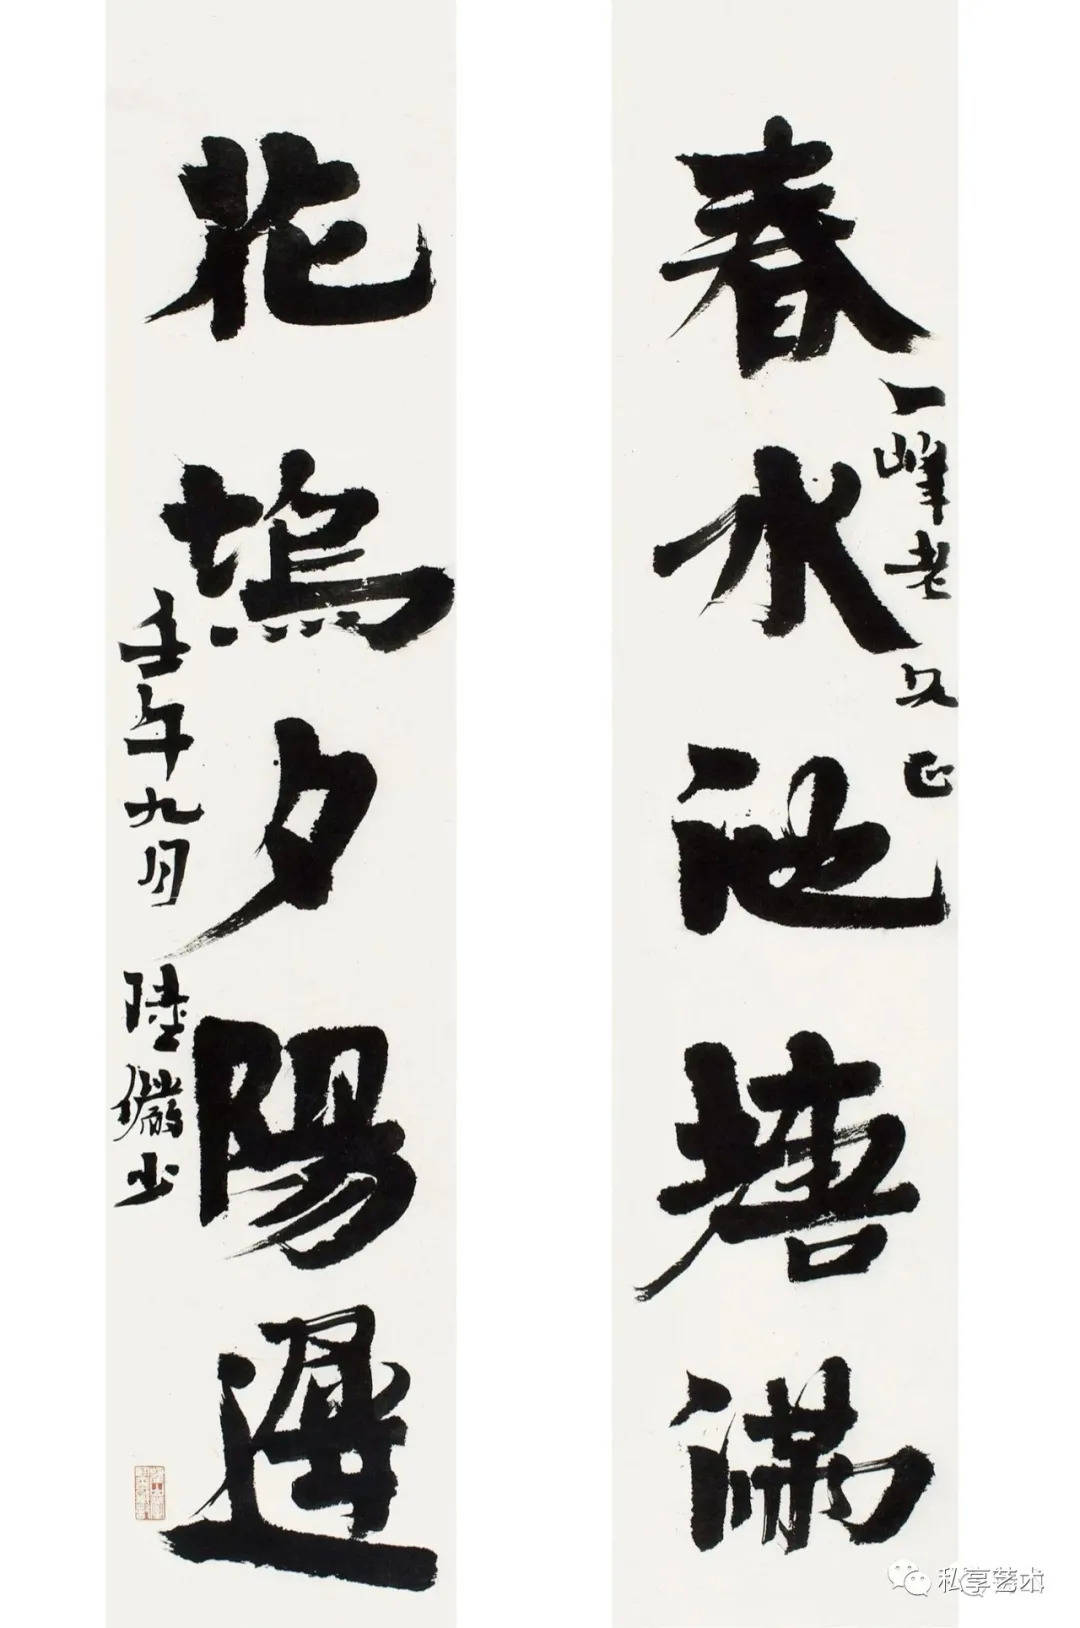 春水池塘满
一峰老友正
花塢夕陽遲
壬午九月 陸儼少
私享艺术